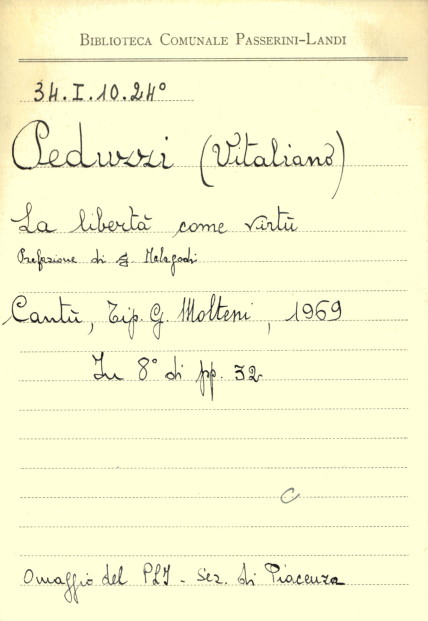 BIBLIOTECA COMUNALE PASSERINI-LANDI
34.I.10.24°
Peduzzi (Vitaliano)
La libertà come virtù
Prefazione di G. Malagodi
Cantù, Tip. G. Molteni, 1969
In 8° di pp. 32
C
Omaggio del PLI - Sez. di Piacenza